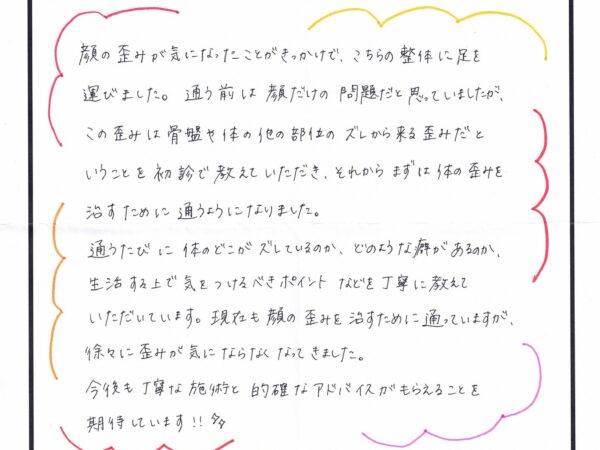 顔の歪みが気になったことがきっかけで、こちらの整体に足を
運びました。通う前は顔だけの問題だと思っていましたが、
この歪みは骨盤や体の他の部位のズレから来る歪みだと
いうことを初診で教えていただき、それからまずは体の歪みを
治すために通うようになりました。
通うたびに体のどこがズレているのか、どのような癖があるのか、
生活する上で気をつけるべきポイントなどを丁寧に教えて
いただいています。現在も顔の歪みを治すために通っていますが、
徐々に歪みが気にならなくなってきました。
今後も丁寧な施術と的確なアドバイスがもらえることを
期待しています!!